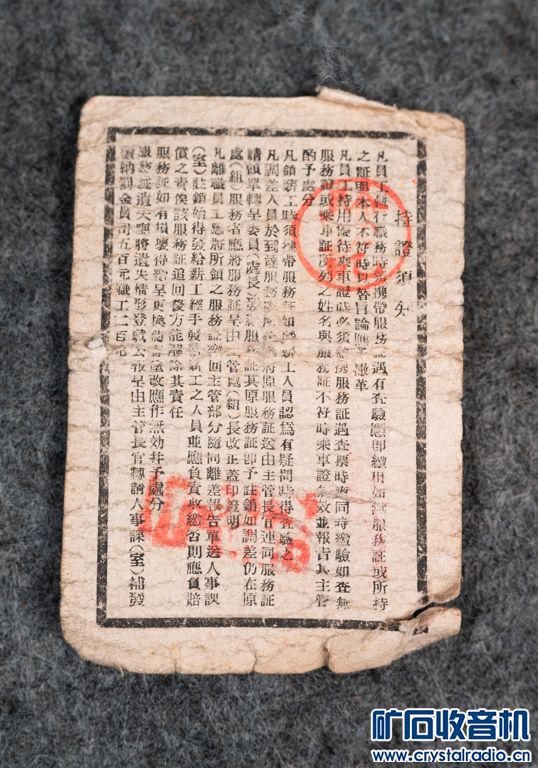 持證須知
凡員工執行服務時應携帶服務証遇有查驗應即繳用如無服務証或所持
之証明本人不符時以替冒論應予撤革
凡員工持用優待乘車證時必須携帶服務証遇查票時應同時繳驗如查無
服務証或乘車証所列之姓名與服務証不符時乘車證無效並報告其主管
酌予處分
凡領薪工時須携帶服務証如發薪工人員認爲有疑問時得查驗之
凡調差人員於到達服務 應將原服務証送由主管長官連同服務証
請領單轉呈委員(處長) 其原服務証即予註銷如調差仍在原
處(組)服務者應將服務証呈由 管處(組)長改正蓋印證明
凡離職員工應將所領之服務証繳回主管部分隨同離差報告單送人事課
(室)註銷始得發給薪工經手發給薪工之人員並應負責收繳否則應負賠
償之責俟該服務証追回後方能解除其責任
服務証如有損壞得繳呈更換 塗改應作無効并予處分
服務証遺失應將遺失情形登載公報呈由主管長官轉請人事課(室)補發
繳納罰金員司五百元職工二百元
矿石收音机
www.crystalradio.cn